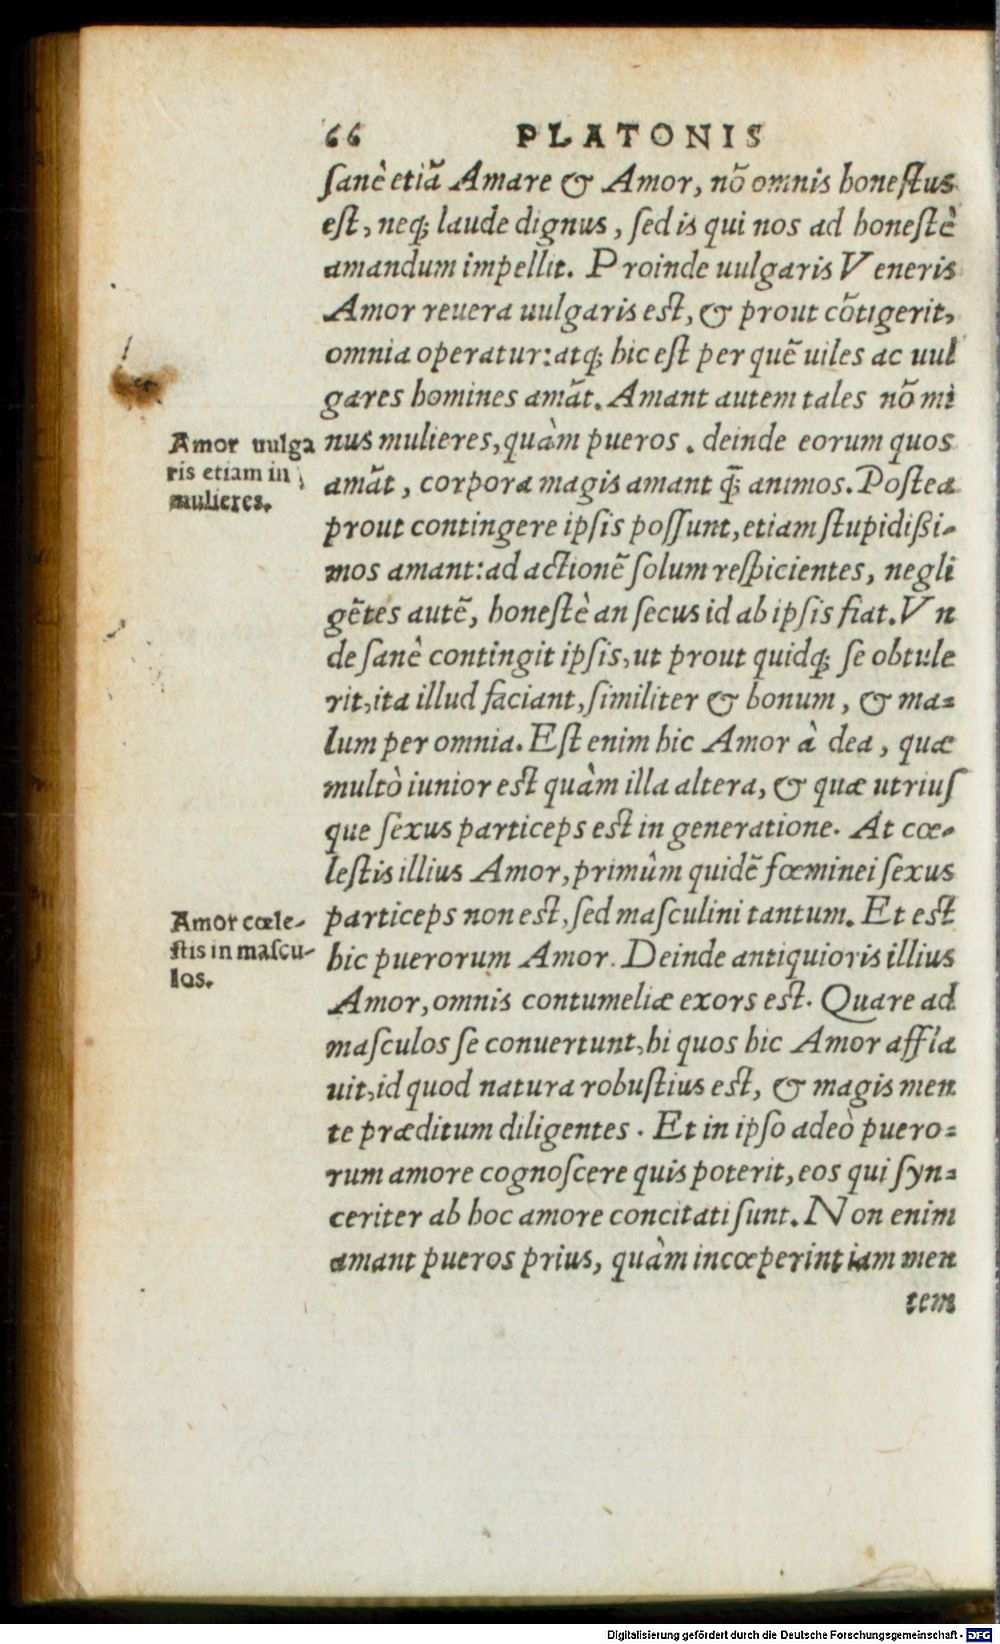 66 PLATONIS
ſanè etiã Amare & Amor, nõ omnis honeſtus
eſt, neq; laude dignus, ſed is qui nos ad honeſtè
amandum impellit. Proinde uulgaris Veneris
Amor reuera uulgaris eſt, & prout cõtigerit,
omnia operatur: atq; hic eſt per quẽ uiles ac uul
gares homines amãt. Amant autem tales nõ mi
nus mulieres, quàm pueros. deinde eorum quos
amãt, corpora magis amant q̃ animos. Poſtea
prout contingere ipſis poſſunt, etiam ſtupidißi-
mos amant: ad actionẽ ſolum reſpicientes, negli
gẽtes autẽ, honeſtè an ſecus id ab ipſis fiat. Vn
de ſanè contingit ipſis, ut prout quidq; ſe obtule
rit, ita illud faciant, ſimiliter & bonum, & ma-
lum per omnia. Eſt enim hic Amor à dea, quæ
multò iunior eſt quàm illa altera, & quæ utriuſ
que ſexus particeps eſt in generatione. At cœ-
leſtis illius Amor, primûm quidẽ fœminei ſexus
particeps non eſt, ſed maſculini tantum. Et eſt
hic puerorum Amor. Deinde antiquioris illius
Amor, omnis contumeliæ exors eſt. Quare ad
maſculos ſe conuertunt, hi quos hic Amor affla
uit, id quod natura robuſtius eſt, & magis men
te præditum diligentes. Et in ipſo adeò puero-
rum amore cognoſcere quis poterit, eos qui ſyn-
ceriter ab hoc amore concitati ſunt. Non enim
amant pueros prius, quàm incœperint iam men
tem
Amor uulga
ris etiam in
mulieres.
Amor cœle-
ſtis in maſcu-
los.
Digitalisierung gefördert durch die Deutsche Forschungsgemeinschaft - DFG